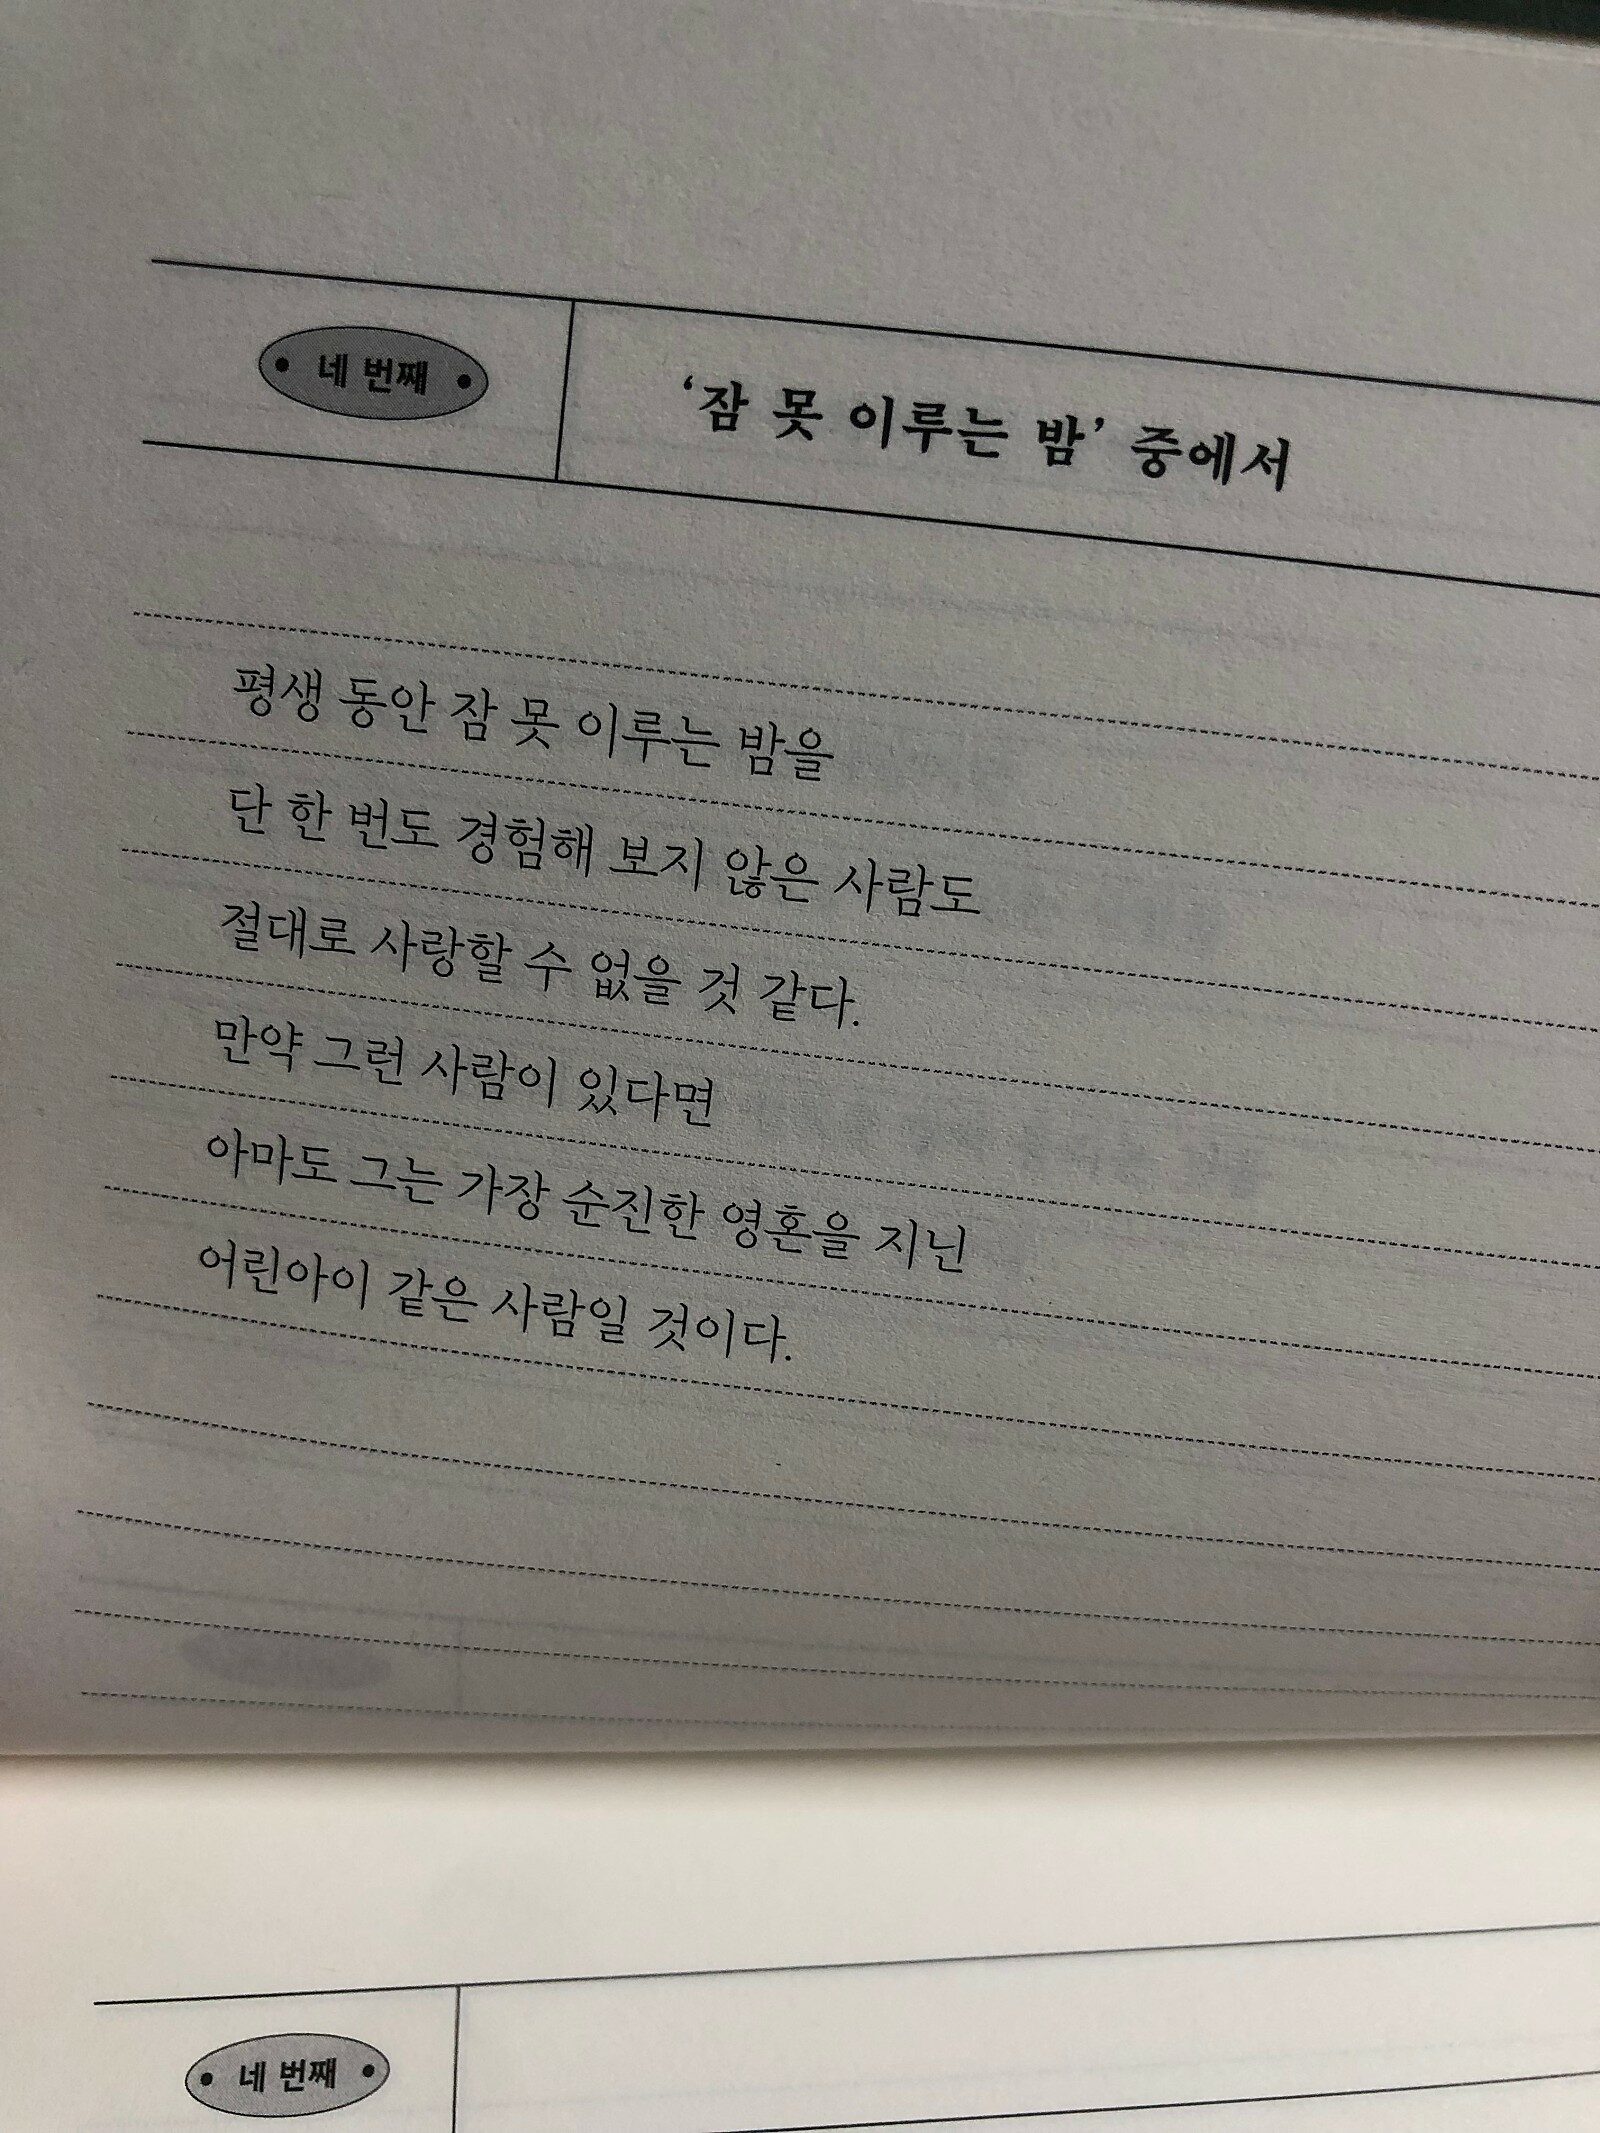 네 번째
‘잠 못 이루는 밤’ 중에서
평생 동안 잠 못 이루는 밤을
단 한 번도 경험해 보지 않은 사람도
절대로 사랑할 수 없을 것 같다.
만약 그런 사람이 있다면
아마도 그는 가장 순진한 영혼을 지닌
어린아이 같은 사람일 것이다.
네 번째